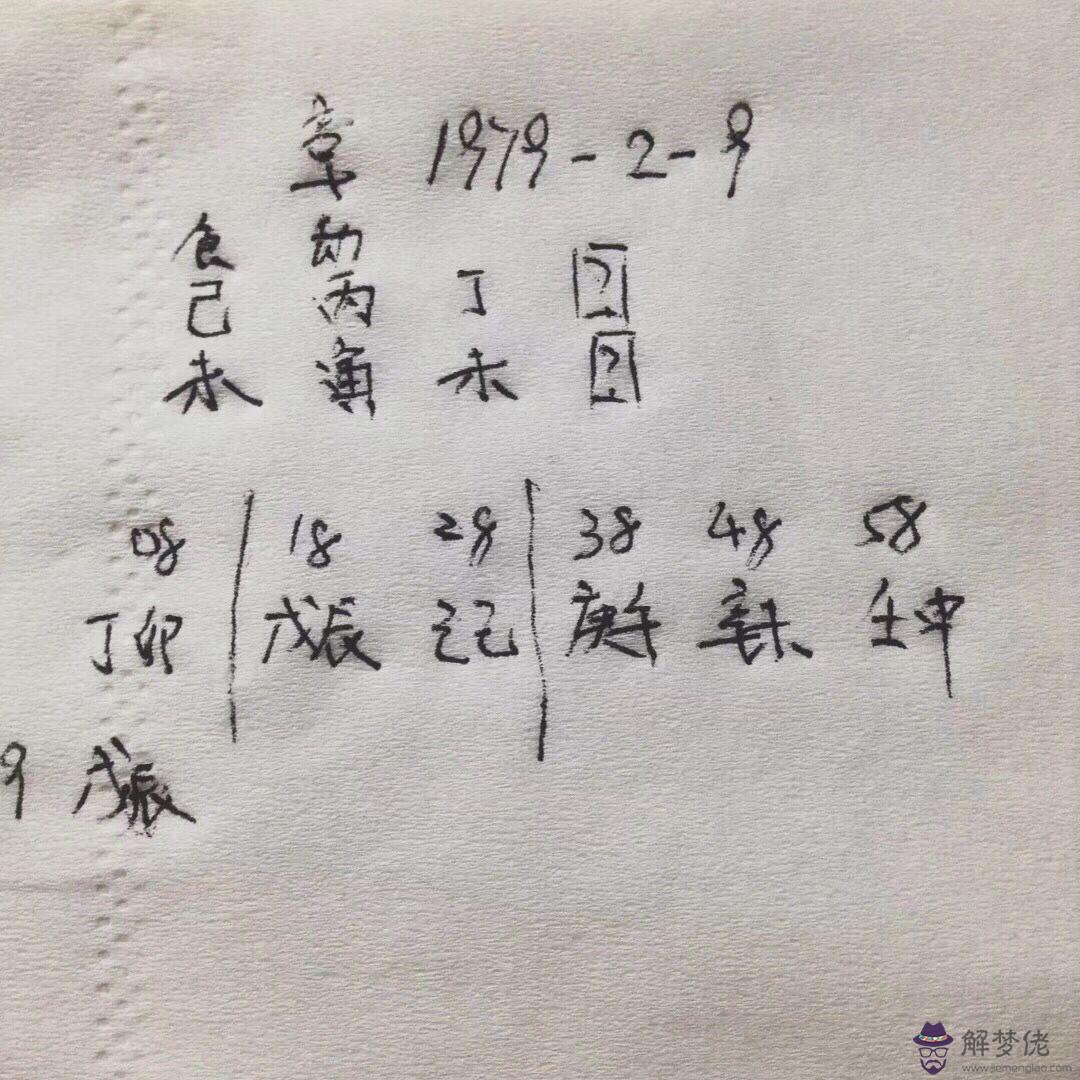 章 1979-2-9
食 劫
己 丙 丁 ?
未 寅 未 ?
08 18 28 38 48 58
丁卯 戊辰 己巳 庚午 辛未 壬申
9 戊辰
解梦佬
www.jiemenglao.com